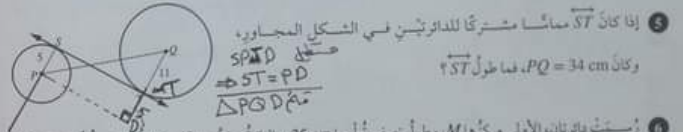 5 إذا كانَ ST مماسًّا مشتركًا للدائرتَيْنِ في الشكلِ المجاورِ،
وكانَ PQ = 34 cm، فما طولُ ST؟
SPTD
⇒ ST = PD
△PQD قائم
S
5
P
Q
11
T
5
D
6